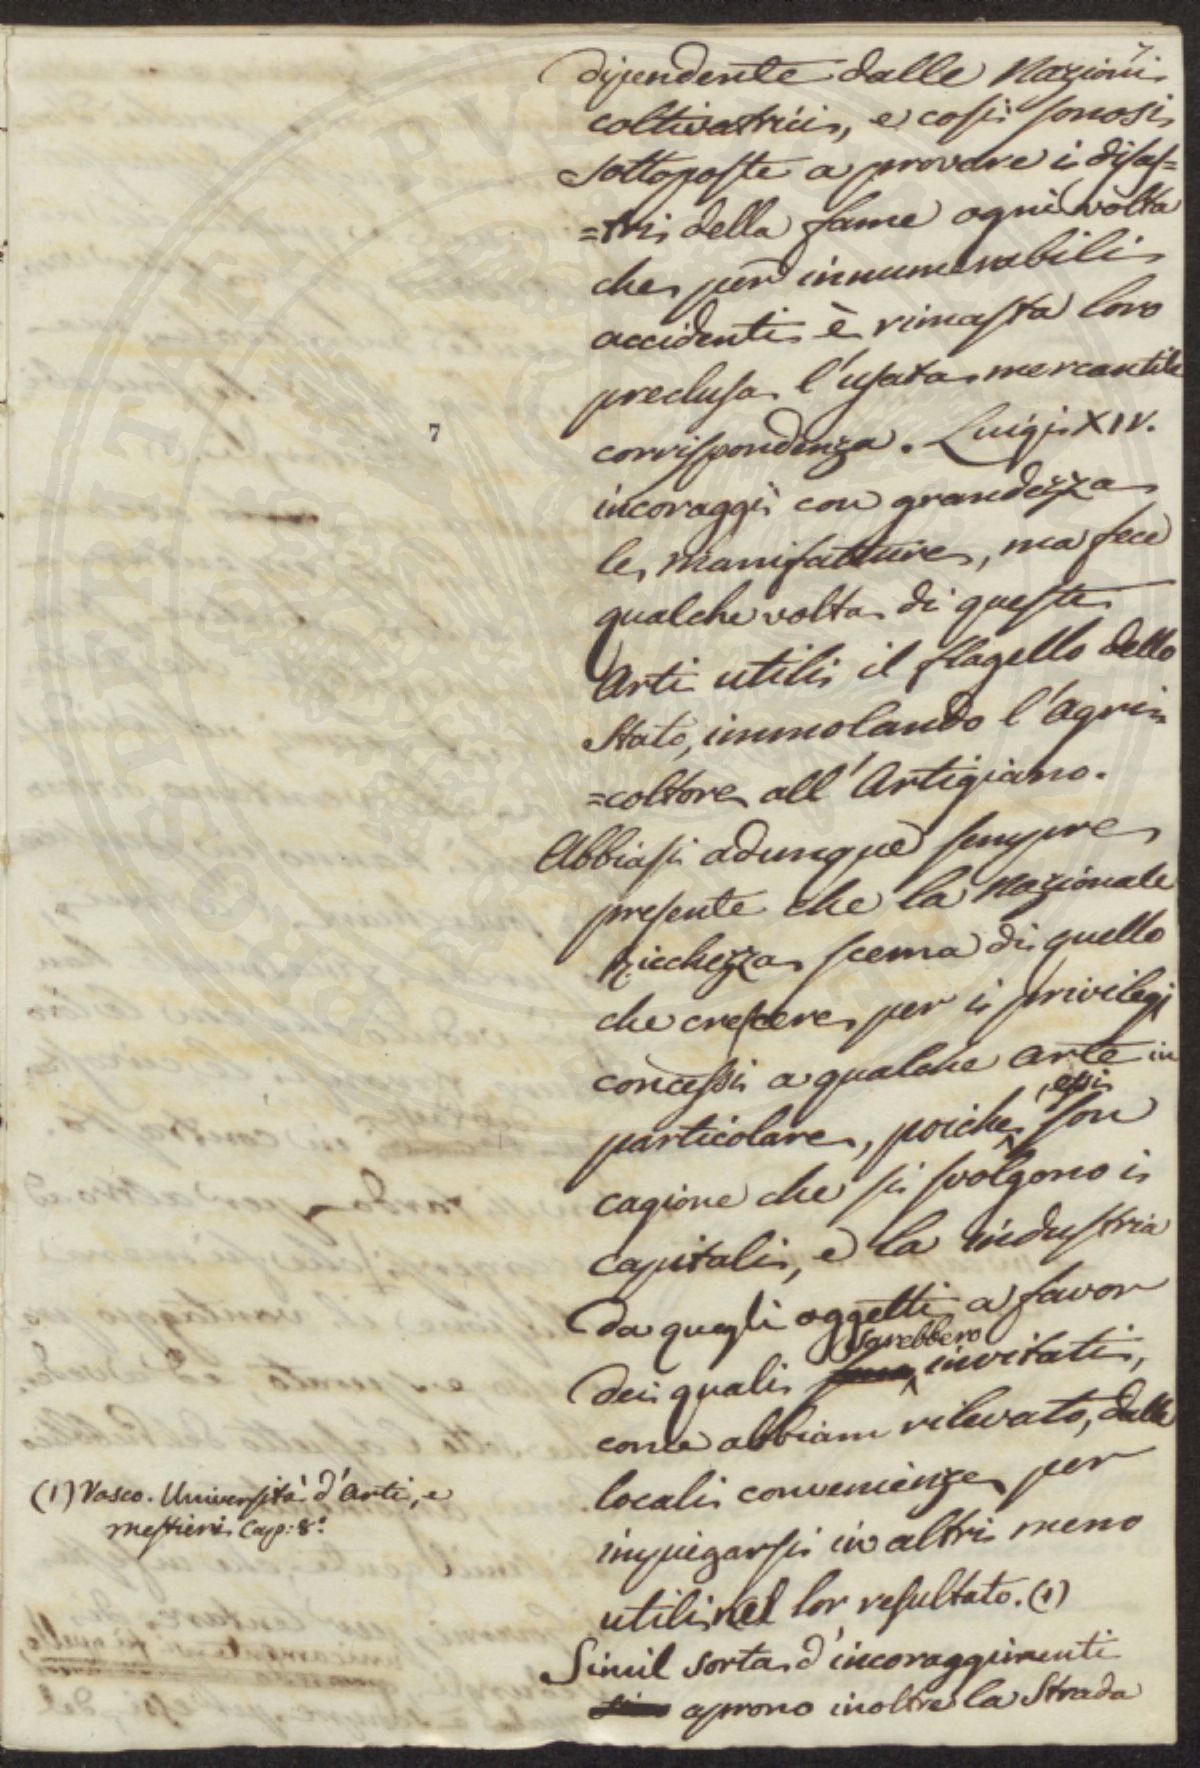 7
dipendente dalle Nazioni
coltivatrici, e così sonosi
sottoposte a provare i disas=
=tri della fame ogni volta
che per innumerabili
accidenti è rimasta loro
preclusa l'usata mercantile
corrispondenza. Luigi XIV.
incoraggì con grandezza
le manifatture, ma fece
qualche volta di queste
Arti utili il flagello dello
Stato, immolando l'Agri=
=coltore all'Artigiano.
Abbiasi adunque sempre
presente che la Nazionale
Ricchezza scema di quello
che crescere per i privilegj
concessi a qualche arte in
particolare, poiche essi son
cagione che si svolgono i
capitali, e la industria
da quegli oggetti a favor
dei quali sarebbero invitati,
come abbiam rilevato, dalle
locali convenienze per
impiegarsi in altri meno
utili nel lor resultato. (1)
Simil sorta d'incoraggimenti
aprono inoltre la Strada
7
(1) Vasco. Università d'Arti, e
mestieri Cap: 8.°
PVBLICAE
PROSPERITATI